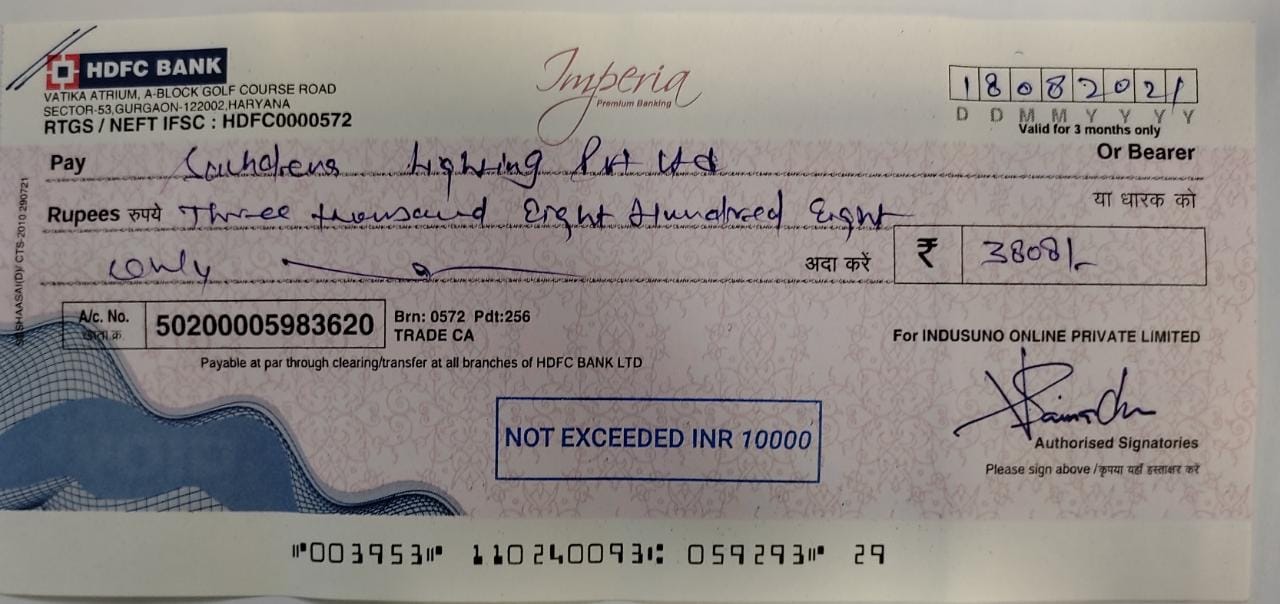 HDFC BANK
VATIKA ATRIUM, A-BLOCK GOLF COURSE ROAD
SECTOR-53,GURGAON-122002,HARYANA
RTGS / NEFT IFSC : HDFC0000572
Imperia
Premium Banking
18082021
D D M M Y Y Y Y
Valid for 3 months only
Pay Lighting Pvt Ltd
Or Bearer
या धारक को
Rupees रुपये Three thousand Eight Hundred Eight
only
अदा करें ₹ 3808/-
A/c. No.
खाता क्र.
50200005983620
Brn: 0572 Pdt:256
TRADE CA
Payable at par through clearing/transfer at all branches of HDFC BANK LTD
For INDUSUNO ONLINE PRIVATE LIMITED
NOT EXCEEDED INR 10000
Authorised Signatories
Please sign above /कृपया यहाँ हस्ताक्षर करें
CTS-2010 290721
⑈003953⑈ 110240093⑆ 059293⑈ 29